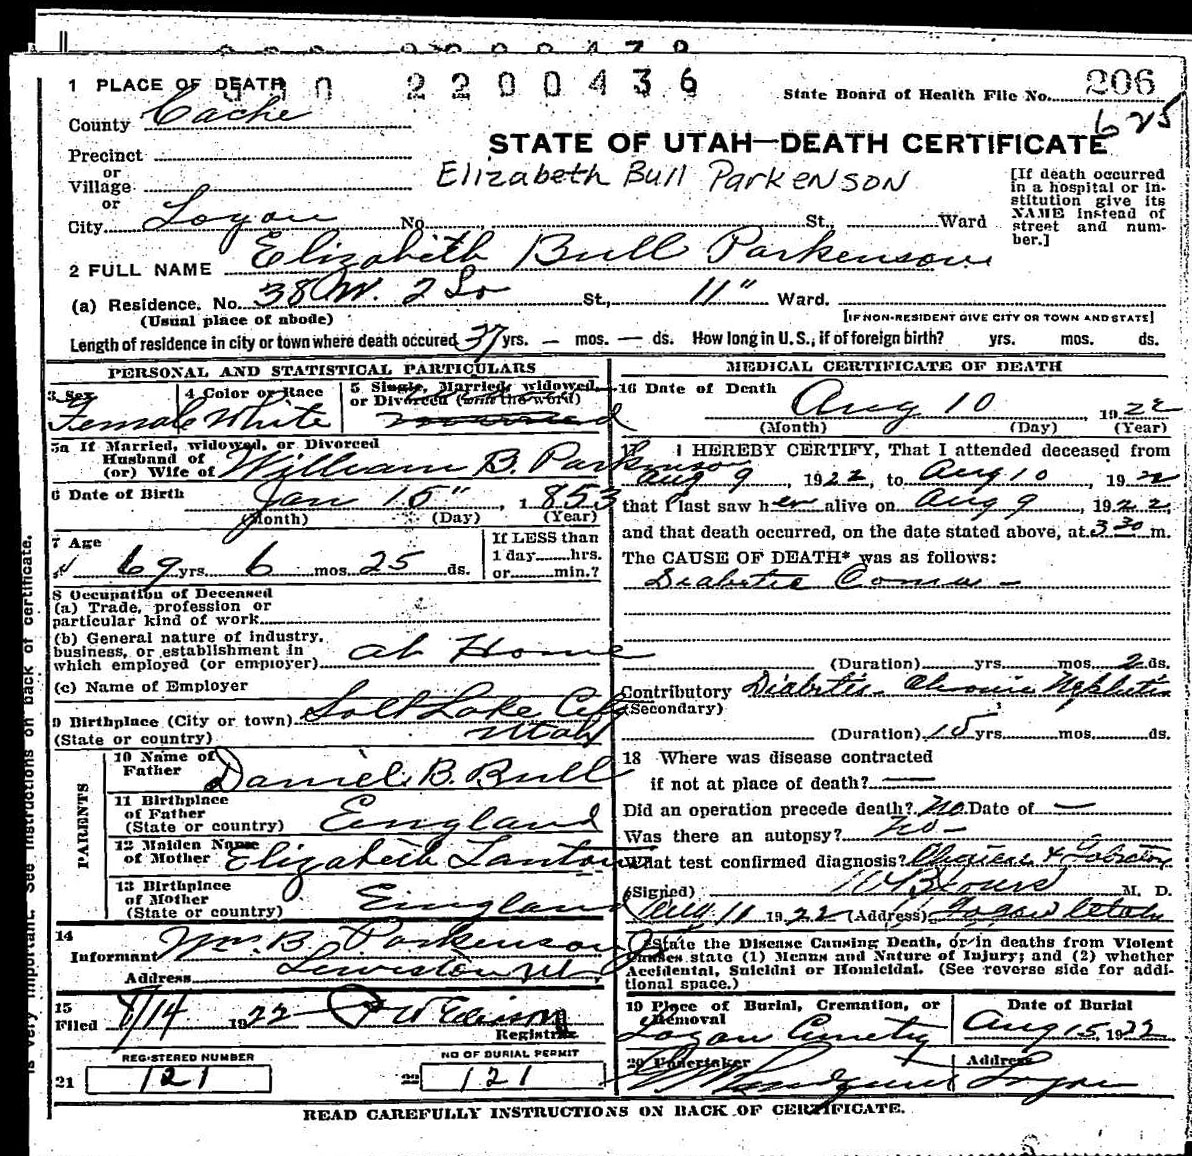 2200436
1 PLACE OF DEATH
State Board of Health File No. 206
625
County Cache
STATE OF UTAH—DEATH CERTIFICATE
Precinct
or
Village
or
Elizabeth Bull Parkenson
[If death occurred
in a hospital or in-
stitution give its
NAME instead of
street and num-
ber.]
City Logan No. St., Ward
2 FULL NAME Elizabeth Bull Parkenson
(a) Residence. No. 38 W. 2 So St., 11" Ward.
(Usual place of abode)
[IF NON-RESIDENT GIVE CITY OR TOWN AND STATE]
Length of residence in city or town where death occured 37 yrs. — mos. — ds. How long in U. S., if of foreign birth? yrs. mos. ds.
PERSONAL AND STATISTICAL PARTICULARS
3 Sex
Female
4 Color or Race
White
5 Single, Married, widowed,
or Divorced (write the word)
5a If Married, widowed, or Divorced
Husband of
(or) Wife of William B. Parkenson
6 Date of Birth
Jan 15", 1853
(Month) (Day) (Year)
7 Age
69 yrs. 6 mos. 25 ds.
If LESS than
1 day hrs.
or min.?
8 Occupation of Deceased
(a) Trade, profession or
particular kind of work
(b) General nature of industry,
business, or establishment in
which employed (or employer) at Home
(c) Name of Employer
9 Birthplace (City or town) Salt Lake City
(State or country) Utah
PARENTS
10 Name of
Father Daniel B. Bull
11 Birthplace
of Father
(State or country) England
12 Maiden Name
of Mother Elizabeth Lantown
13 Birthplace
of Mother
(State or country) England
14
Informant Wm. B. Parkenson Jr
Address Lewiston Ut
15
Filed 8/14 1922
Registrar
REGISTERED NUMBER
21 121
NO OF BURIAL PERMIT
22 121
MEDICAL CERTIFICATE OF DEATH
16 Date of Death
Aug 10, 1922
(Month) (Day) (Year)
17 I HEREBY CERTIFY, That I attended deceased from
Aug 9, 1922, to Aug 10, 1922
that I last saw her alive on Aug 9, 1922,
and that death occurred, on the date stated above, at 3 30 m.
The CAUSE OF DEATH* was as follows:
Diabetic Coma —
(Duration) yrs. mos. 2 ds.
Contributory Diabetis - Chronic Nephritis
(Secondary)
(Duration) 15 yrs. mos. ds.
18 Where was disease contracted
if not at place of death? —
Did an operation precede death? No. Date of —
Was there an autopsy? No —
What test confirmed diagnosis?
(Signed) M. D.
Aug 11 1922 (Address) Logan Utah
*State the Disease Causing Death, or in deaths from Violent
Causes state (1) Means and Nature of Injury; and (2) whether
Accidental, Suicidal or Homicidal. (See reverse side for addi-
tional space.)
19 Place of Burial, Cremation, or
Removal
Logan Cemetry
Date of Burial
Aug 15, 1922
20 Undertaker
Address
Logan
READ CAREFULLY INSTRUCTIONS ON BACK OF CERTIFICATE.
is very important. See instructions on back of certificate.